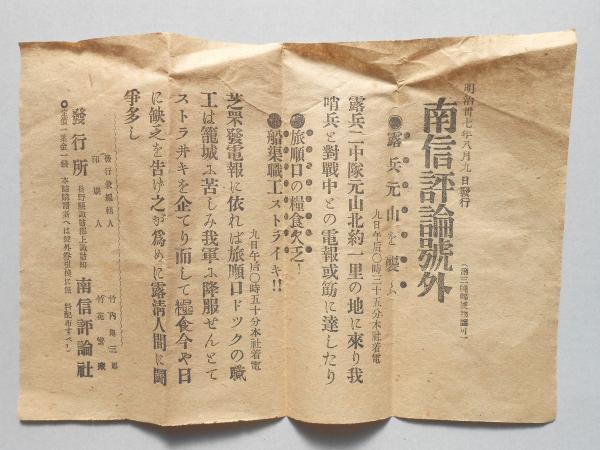 明治卅七年八月九日發行
南信評論號外
（第三種郵便物認可）
◉露兵元山を襲ふ
九日午后〇時三十五分本社着電
露兵二中隊元山北約一里の地に來り我
哨兵と對戰中との電報或筋に達したり
◉旅順口の糧食欠乏！
◉船渠職工ストライキ!!
九日午后〇時五十分本社着電
芝罘發電報に依れば旅順口ドックの職
工は籠城に苦しみ我軍に降服せんとて
ストライキを企てり而して糧食今や日
に缺乏を告け之が爲めに露淸人間に鬪
爭多し
發行兼編輯人 竹內
印刷人 竹花
發行所 長野縣諏訪郡上諏訪町 南信評論社
●定價一葉金一錢